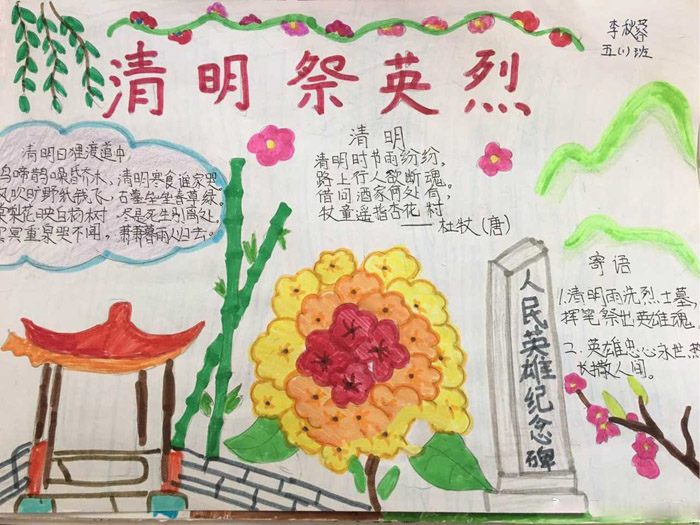 李秋蓉
五(1)班
清明祭英烈
清明日狸渡道中
啼鹊噪昏乔木,清明寒食谁家哭。
风吹旷野纸钱飞,古墓垒垒春草绿。
棠梨花映白杨村,尽是死生别离处。
冥冥重泉哭不闻,萧萧暮雨人归去。
清明
清明时节雨纷纷,
路上行人欲断魂。
借问酒家何处有,
牧童遥指杏花村
——杜牧(唐)
人民英雄纪念碑
寄语
1.清明雨洗烈士墓,
挥笔祭出英雄魂
二.英雄忠心永世
长撒人间。